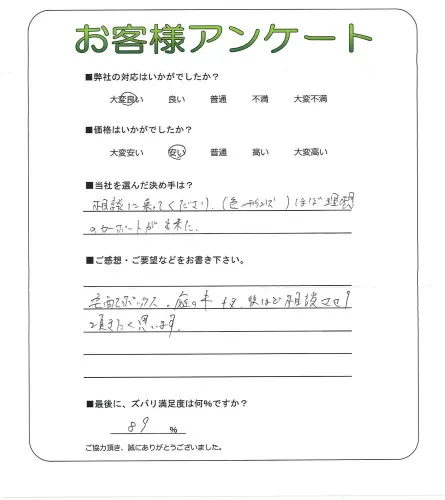 お客様アンケート
■弊社の対応はいかがでしたか?
大変良い 良い 普通 不満 大変不満
■価格はいかがでしたか?
大変安い 安い 普通 高い 大変高い
■当社を選んだ決め手は?
相談に乗ってくださり、(色 サイズ)ほぼ理想
のカーポートが出来た。
■ご感想・ご要望などをお書き下さい。
宅配ボックス、庭の木 後ほど相談させて
頂きたく思います。
■最後に、ズバリ満足度は何%ですか?
89 %
ご協力頂き、誠にありがとうございました。